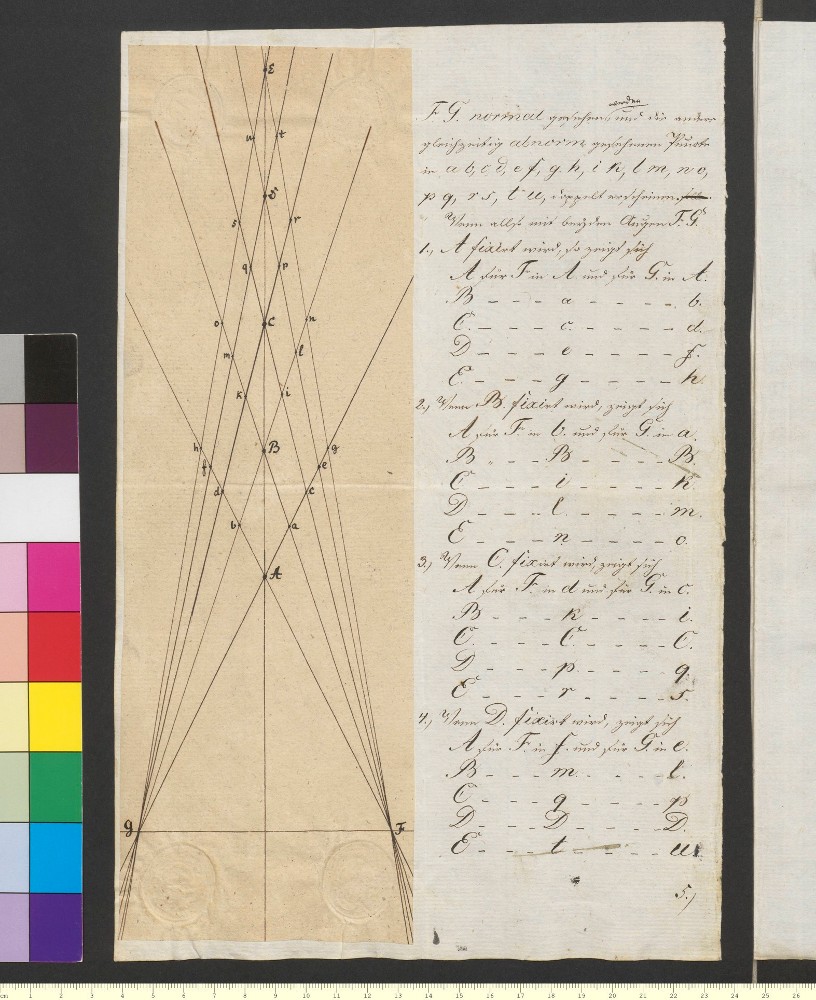 E
u t
D
s r
q p
o C n
m l
k i
h B g
f e
d c
b a
A
G F
werden
F. G. normal gesehen und die andern
gleichzeitig abnorm gesehenen Puncte
in a b, c d, e f, g h, i k, l m, n o,
p q, r s, t u, doppelt erscheinen
Wenn also mit beyden Augen F. G.
1., A fixirt wird, so zeigt sich
A für F. in A. und für G. in A.
B - - - a - - - - - b.
C. - - - c. - - - - - d.
D - - - e - - - - - f.
E - - - g - - - - - h.
2., Wenn B. fixirt wird, zeigt sich
A für F. in b. und für G. in a.
B " - - B - - - - B.
C - - - i - - - - - k.
D - - - l - - - - - m.
E - - - n - - - - - o.
3.) Wenn C. fixirt wird, zeigt sich
A für F. in d und für G. in c.
B - - - k - - - - i.
C. - - - C - - - - C.
D - - - p - - - - q.
E - - - r - - - - s.
4.) Wenn D. fixirt wird, zeigt sich
A für F. in f. und für G. in e.
B - - - m - - - - l.
C - - - q - - - - p
D - - - D - - - - D.
E - - - t - - - - u.
5.)
cm 1 2 3 4 5 6 7 8 9 10 11 12 13 14 15 16 17 18 19 20 21 22 23 24 25 26